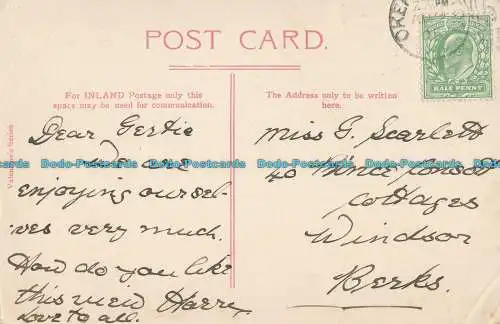 POST CARD.
For INLAND Postage only this
space may be used for communication.
The Address only to be written
here.
HALF PENNY
Valentine's Series
Dear Gertie
We are
enjoying oursel-
ves very much.
How do you like
this view Harry
Love to all.
Miss G. Scarlett
40 Prince Consort
Cottages
Windsor
Berks.
Dodo-Postcards Dodo-Postcards Dodo-Postcards Dodo-Postcards Dodo-Postcards